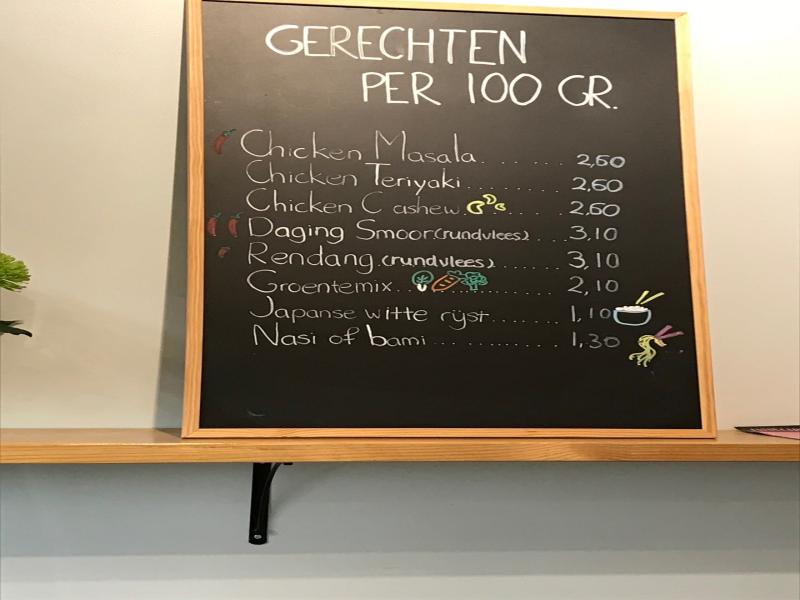 GERECHTEN
PER 100 GR.
Chicken Masala....... 2,60
Chicken Teriyaki......... 2,60
Chicken Cashew..... 2,60
Daging Smoor (rundvlees)... 3,10
Rendang (rundvlees)...... 3,10
Groentemix............ 2,10
Japanse witte rijst....... 1,10
Nasi of bami............ 1,30